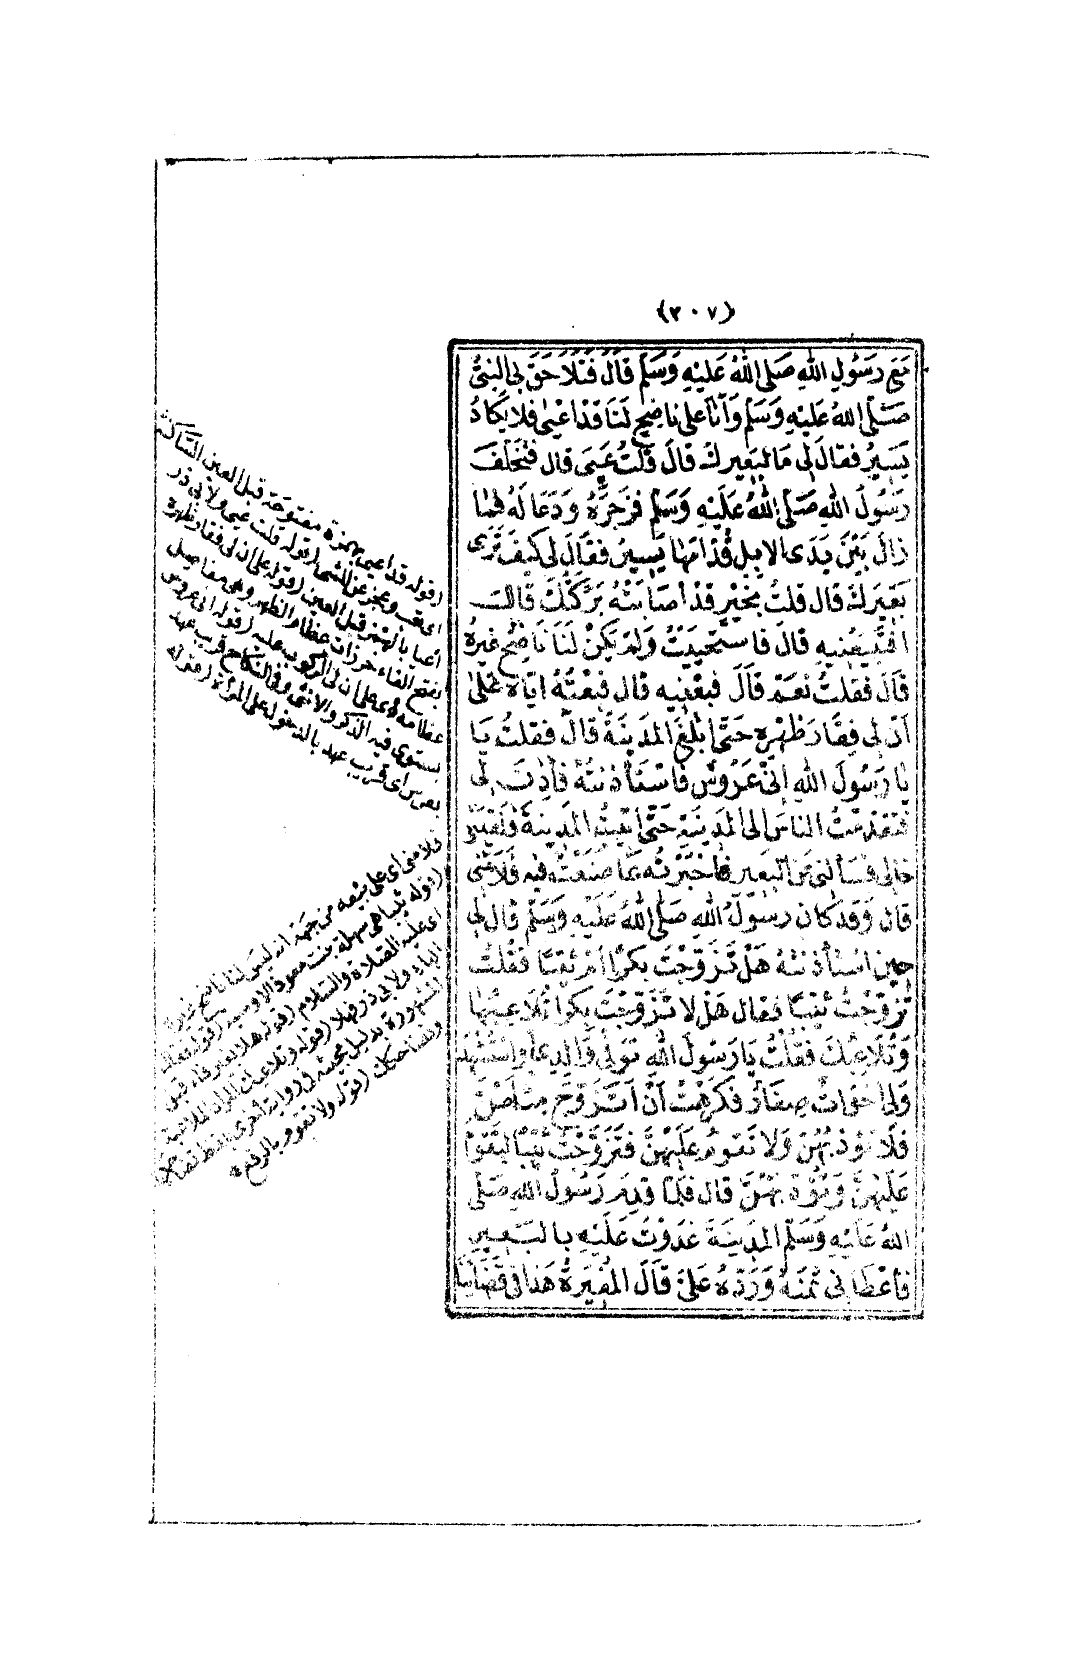 (٣٠٧)
مَعَ رَسُولِ اللهِ صَلَّى اللهُ عَلَيْهِ وَسَلَّمَ قَالَ فَتَلَاحَقَ بِيَ النَّبِيُّ
صَلَّى اللهُ عَلَيْهِ وَسَلَّمَ وَأَنَا عَلَى نَاضِحٍ لَنَا قَدْ أَعْيَى فَلَا يَكَادُ
يَسِيرُ فَقَالَ لِي مَا لِبَعِيرِكَ قَالَ قُلْتُ عَيِيَ قَالَ فَتَخَلَّفَ
رَسُولُ اللهِ صَلَّى اللهُ عَلَيْهِ وَسَلَّمَ فَزَجَرَهُ وَدَعَا لَهُ فَمَا
زَالَ بَيْنَ يَدَيِ الْإِبِلِ قُدَّامَهَا يَسِيرُ فَقَالَ لِي كَيْفَ تَرَى
بَعِيرَكَ قَالَ قُلْتُ بِخَيْرٍ قَدْ أَصَابَتْهُ بَرَكَتُكَ قَالَ
أَفَتَبِيعُنِيهِ قَالَ فَاسْتَحْيَيْتُ وَلَمْ يَكُنْ لَنَا نَاضِحٌ غَيْرُهُ
قَالَ فَقُلْتُ نَعَمْ قَالَ فَبِعْنِيهِ قَالَ فَبِعْتُهُ إِيَّاهُ عَلَى
أَنَّ لِي فَقَارَ ظَهْرِهِ حَتَّى أَبْلُغَ الْمَدِينَةَ قَالَ فَقُلْتُ يَا
يَا رَسُولَ اللهِ إِنِّي عَرُوسٌ فَاسْتَأْذَنْتُهُ فَأَذِنَ لِي
فَتَقَدَّمْتُ النَّاسَ إِلَى الْمَدِينَةِ حَتَّى أَتَيْتُ الْمَدِينَةَ فَلَقِيَنِي
خَالِي فَسَأَلَنِي عَنِ الْبَعِيرِ فَأَخْبَرْتُهُ بِمَا صَنَعْتُ فِيهِ فَلَامَنِي
قَالَ وَقَدْ كَانَ رَسُولُ اللهِ صَلَّى اللهُ عَلَيْهِ وَسَلَّمَ قَالَ لِي
حِينَ اسْتَأْذَنْتُهُ هَلْ تَزَوَّجْتَ بِكْرًا أَمْ ثَيِّبًا فَقُلْتُ
تَزَوَّجْتُ ثَيِّبًا فَقَالَ هَلْ لَا تَزَوَّجْتَ بِكْرًا تُلَاعِبُهَا
وَتُلَاعِبُكَ فَقُلْتُ يَا رَسُولَ اللهِ تُوُفِّيَ وَالِدِي أَوِ اسْتُشْهِدَ
وَلِي أَخَوَاتٌ صِغَارٌ فَكَرِهْتُ أَنْ أَتَزَوَّجَ مِثْلَهُنَّ
فَلَا تُؤَدِّبُهُنَّ وَلَا تَقُومُ عَلَيْهِنَّ فَتَزَوَّجْتُ ثَيِّبًا لِتَقُومَ
عَلَيْهِنَّ وَتُؤَدِّبَهُنَّ قَالَ فَلَمَّا قَدِمَ رَسُولُ اللهِ صَلَّى
اللهُ عَلَيْهِ وَسَلَّمَ الْمَدِينَةَ غَدَوْتُ عَلَيْهِ بِالْبَعِيرِ
فَأَعْطَانِي ثَمَنَهُ وَرَدَّهُ عَلَيَّ قَالَ الْمُغِيرَةُ هَذَا فِي قَضَائِنَا
(قوله قد أعيى بهمزة مفتوحة قبل العين الساكنة
أي تعب وعجز عن المشي (قوله قلت عيي ولأبي ذر
أعيا بالهمز قبل العين (قوله على أن لي فقار ظهره
بفتح الفاء خرزات عظام الظهر وهي مفاصل
عظامه أي على أن لي الركوب عليه (قوله إني عروس
يستوي فيه الذكر والأنثى وفي النكاح قريب عهد
بعرس أي قريب عهد بالدخول على المرأة (قوله
فلامني أي على بيعه من جهة أنه ليس لنا ناضح غيره
(قوله ثيبا هي سهلة بنت مسعود الأوسية (قوله فقال
أي عليه الصلاة والسلام (قوله هلا بغير فاء قبل
الهاء ولأبي ذر فهلا (قوله وتلاعبك المراد الملاعبة
المشهورة بدليل مجيئه في رواية أخرى بلفظ تضاحكها
وتضاحكك (قوله ولا تقوم بالرفع *